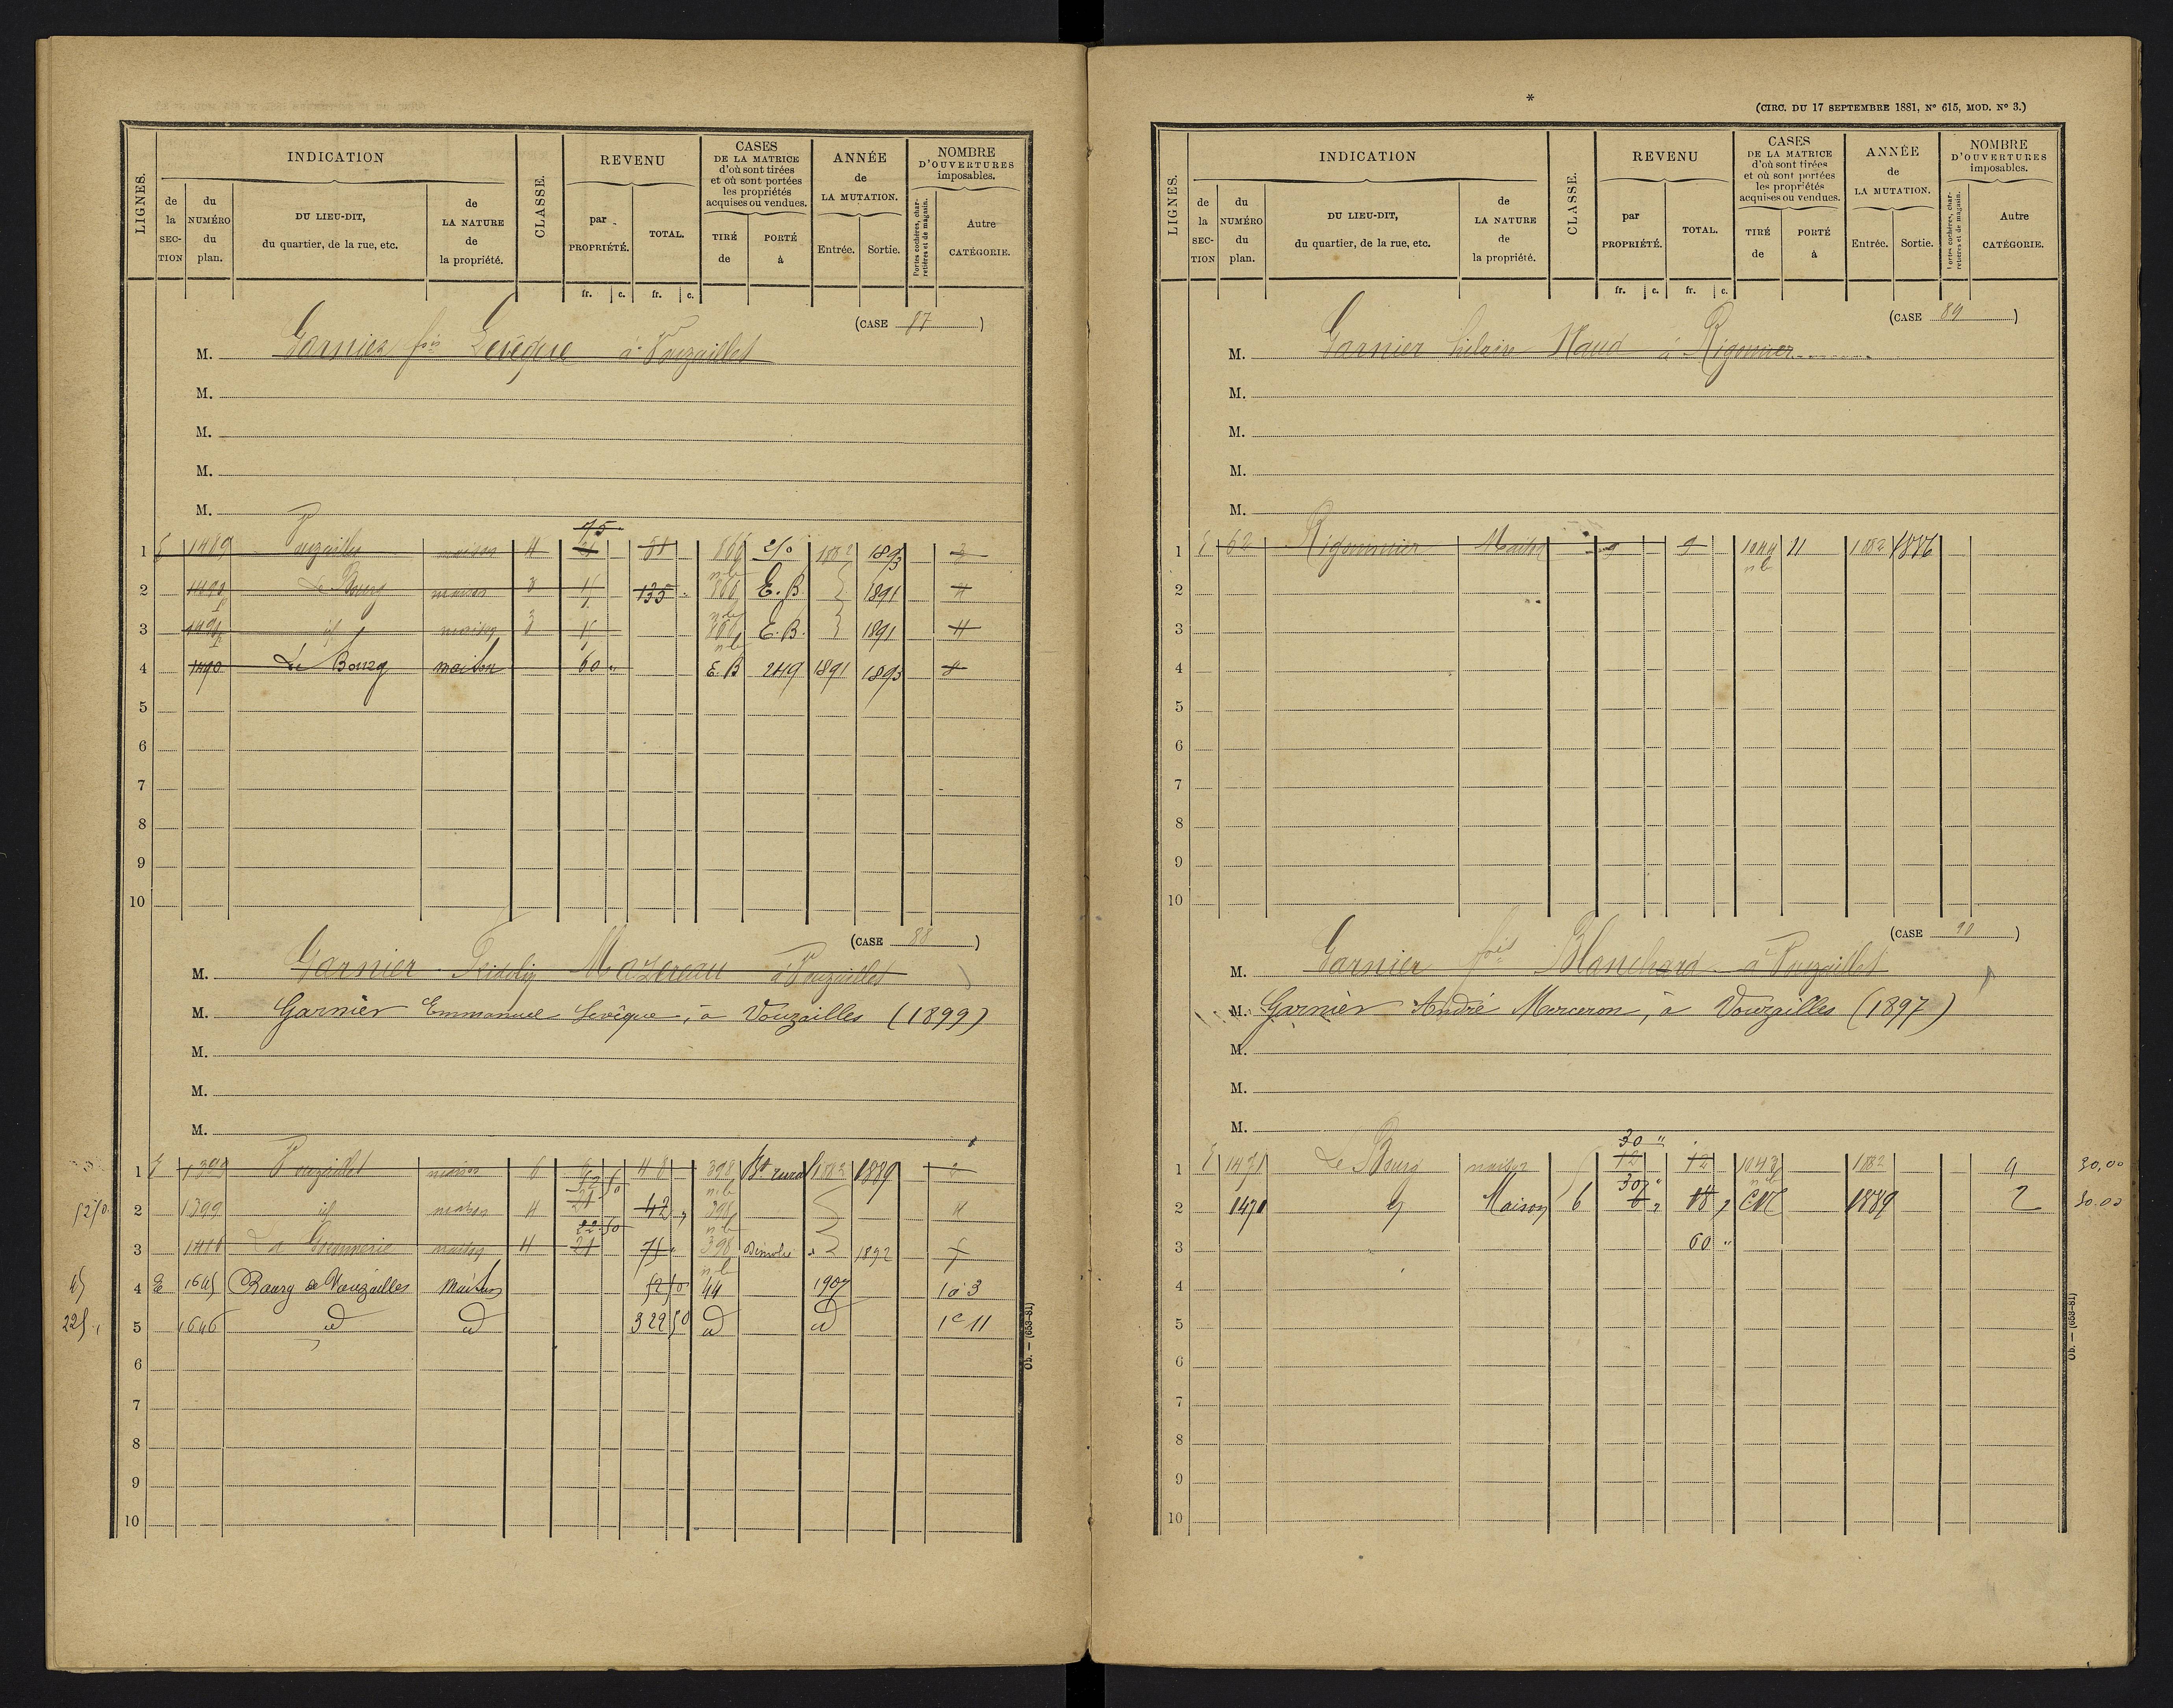 LIGNES.
INDICATION
de la SECTION
du NUMÉRO du plan.
DU LIEU-DIT, du quartier, de la rue, etc.
de LA NATURE de la propriété.
CLASSE.
REVENU
par PROPRIÉTÉ.
TOTAL.
CASES DE LA MATRICE d'où sont tirées et où sont portées les propriétés acquises ou vendues.
TIRÉ de
PORTÉ à
ANNÉE de LA MUTATION.
Entrée.
Sortie.
NOMBRE D'OUVERTURES imposables.
Portes cochères, charretières et de magasin.
Autre CATÉGORIE.
fr. c. fr. c.
(CASE 87)
M. Garnier fois Levêque à Vouzailles
M.
M.
M.
M.
75
1 E 1489 Vouzailles maison 4 21 51 866 1882 1893 3
n b
2 1490 Le Bourg maison 3 15 135 866 E.B. 1891 4
n b
3 id maison 3 15 866 E.B. 1891 4
n b
4 1490 Le Bourg maison 60 " E.B 249 1891 1893 8
5
6
7
8
9
10
(CASE 88)
M. Garnier Mazereau à Vouzailles
M. Garnier Emmanuel Levêque, à Vouzailles (1899)
M.
M.
M.
1 E 1399 Vouzailles maison 6 6 48 398 Bt rural 1882 1889 2
52 50 n b
52 50 2 1399 id maison 4 21 42 " 398 4
22 50 n b
3 maison 4 21 75 " 398 Démolie 1892
n b
45 4 E 1645 Bourg de Vouzailles Maison 52 50 44 1907 1 à 3
225 " 5 1646 d d 322 50 d d 1c 11
6
7
8
9
10
Ob. — (653-81)
*
(CIRC. DU 17 SEPTEMBRE 1881, No 615, MOD. No 3.)
LIGNES.
INDICATION
de la SECTION
du NUMÉRO du plan.
DU LIEU-DIT, du quartier, de la rue, etc.
de LA NATURE de la propriété.
CLASSE.
REVENU
par PROPRIÉTÉ.
TOTAL.
CASES DE LA MATRICE d'où sont tirées et où sont portées les propriétés acquises ou vendues.
TIRÉ de
PORTÉ à
ANNÉE de LA MUTATION.
Entrée.
Sortie.
NOMBRE D'OUVERTURES imposables.
Portes cochères, charretières et de magasin.
Autre CATÉGORIE.
fr. c. fr. c.
(CASE 89)
M. Garnier hilaire Naud à Rigomier
M.
M.
M.
M.
1 E 62 Rigommier Maison 9 9 1044 11 1882 1886
n b
2
3
4
5
6
7
8
9
10
(CASE 90)
M. Garnier Blanchard à Vouzailles
M. Garnier André Morceron, à Vouzailles (1897)
M.
M.
M.
30 "
1 E 1471 Le Bourg maison 5 12 12 1043 1882 4 30,00
30 " n b
2 1471 Maison 6 6 " 18 " CN 1889 2 30.00
3 60 "
4
5
6
7
8
9
10
Ob. — (653-81)